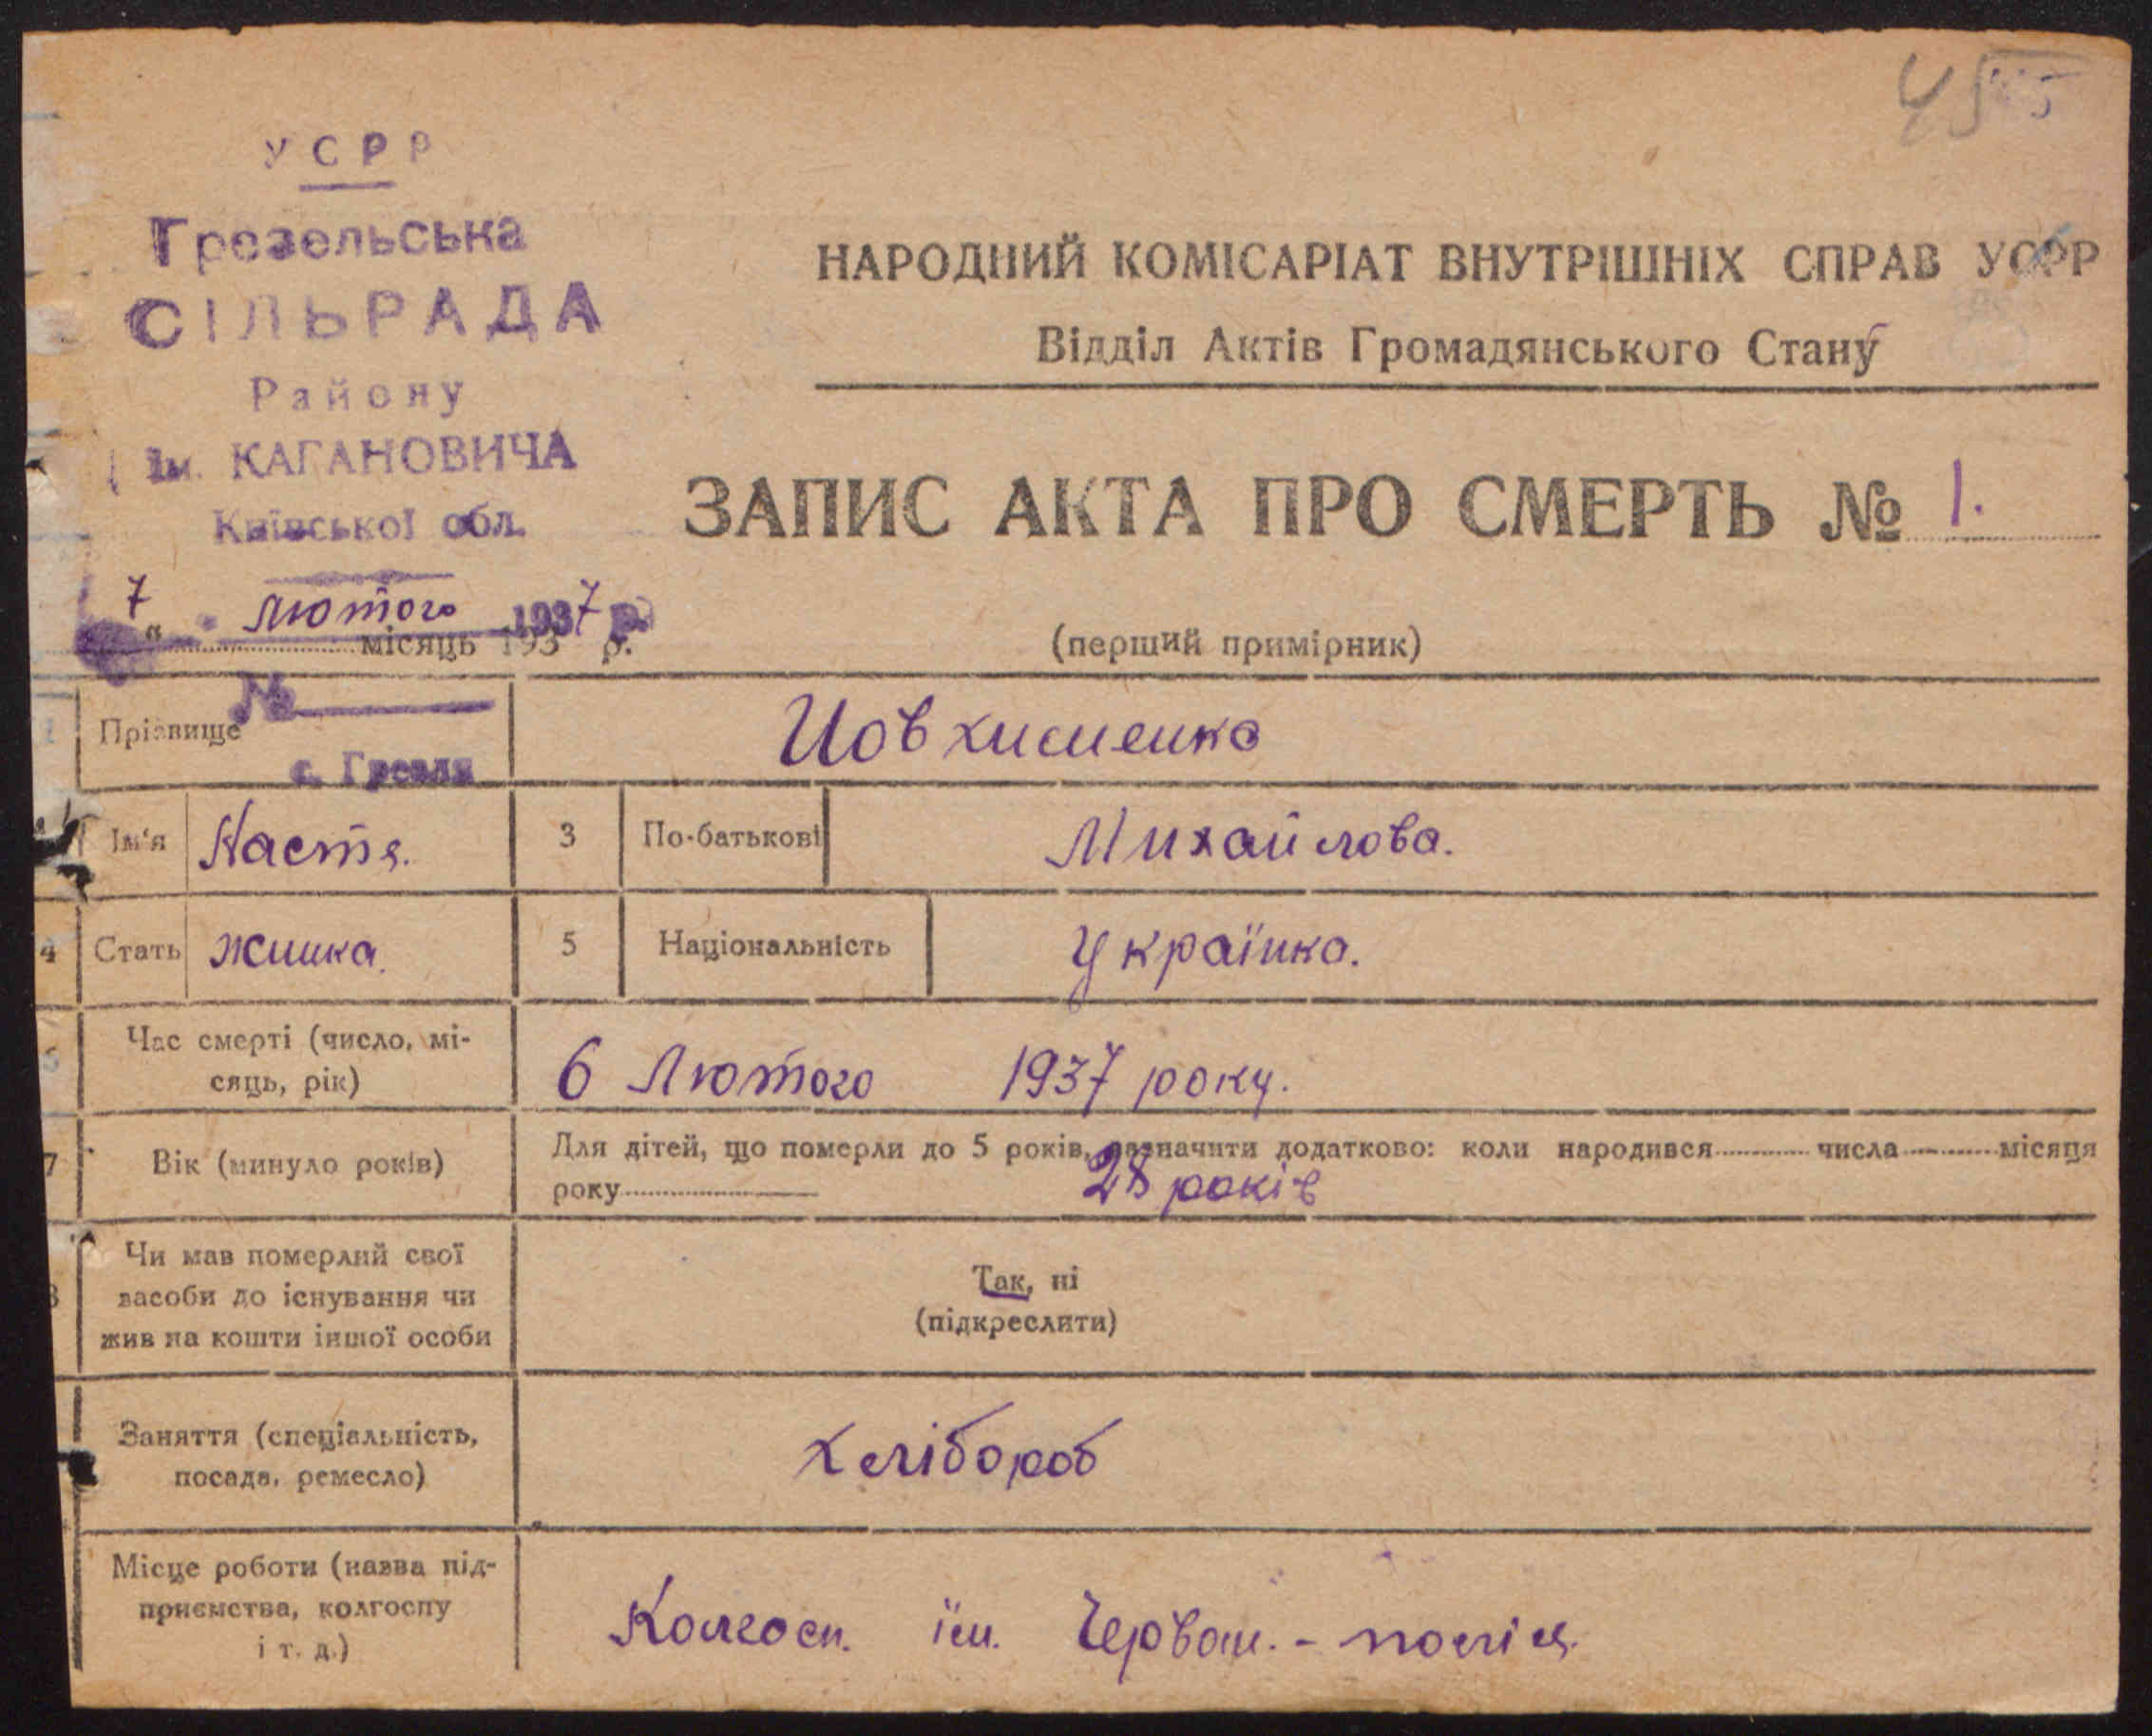 УСРР
Грезельська
СІЛЬРАДА
Району
Ім. КАГАНОВИЧА
Київської обл.
НАРОДНИЙ КОМІСАРІАТ ВНУТРІШНІХ СПРАВ УСРР
Відділ Актів Громадянського Стану
ЗАПИС АКТА ПРО СМЕРТЬ № 1.
7 лютого 1937 р.
місяць 193 р.
(перший примірник)
№
с. Грезля
Прізвище Йовхименко
Ім'я Настя. 3 По-батькові Михайлова.
4 Стать жинка. 5 Національність Українка.
Час смерті (число, мі-
сяць, рік) 6 Лютого 1937 року.
7 Вік (минуло років) Для дітей, що померли до 5 років, зазначити додатково: коли народився числа місяця
року 28 років
Чи мав померлий свої
засоби до існування чи
жив на кошти іншої особи
Так, ні
(підкреслити)
Заняття (спеціальність,
посада, ремесло) Хлібороб
Місце роботи (назва під-
приємства, колгоспу
і т. д.) Колгосп. їм. Червон. -